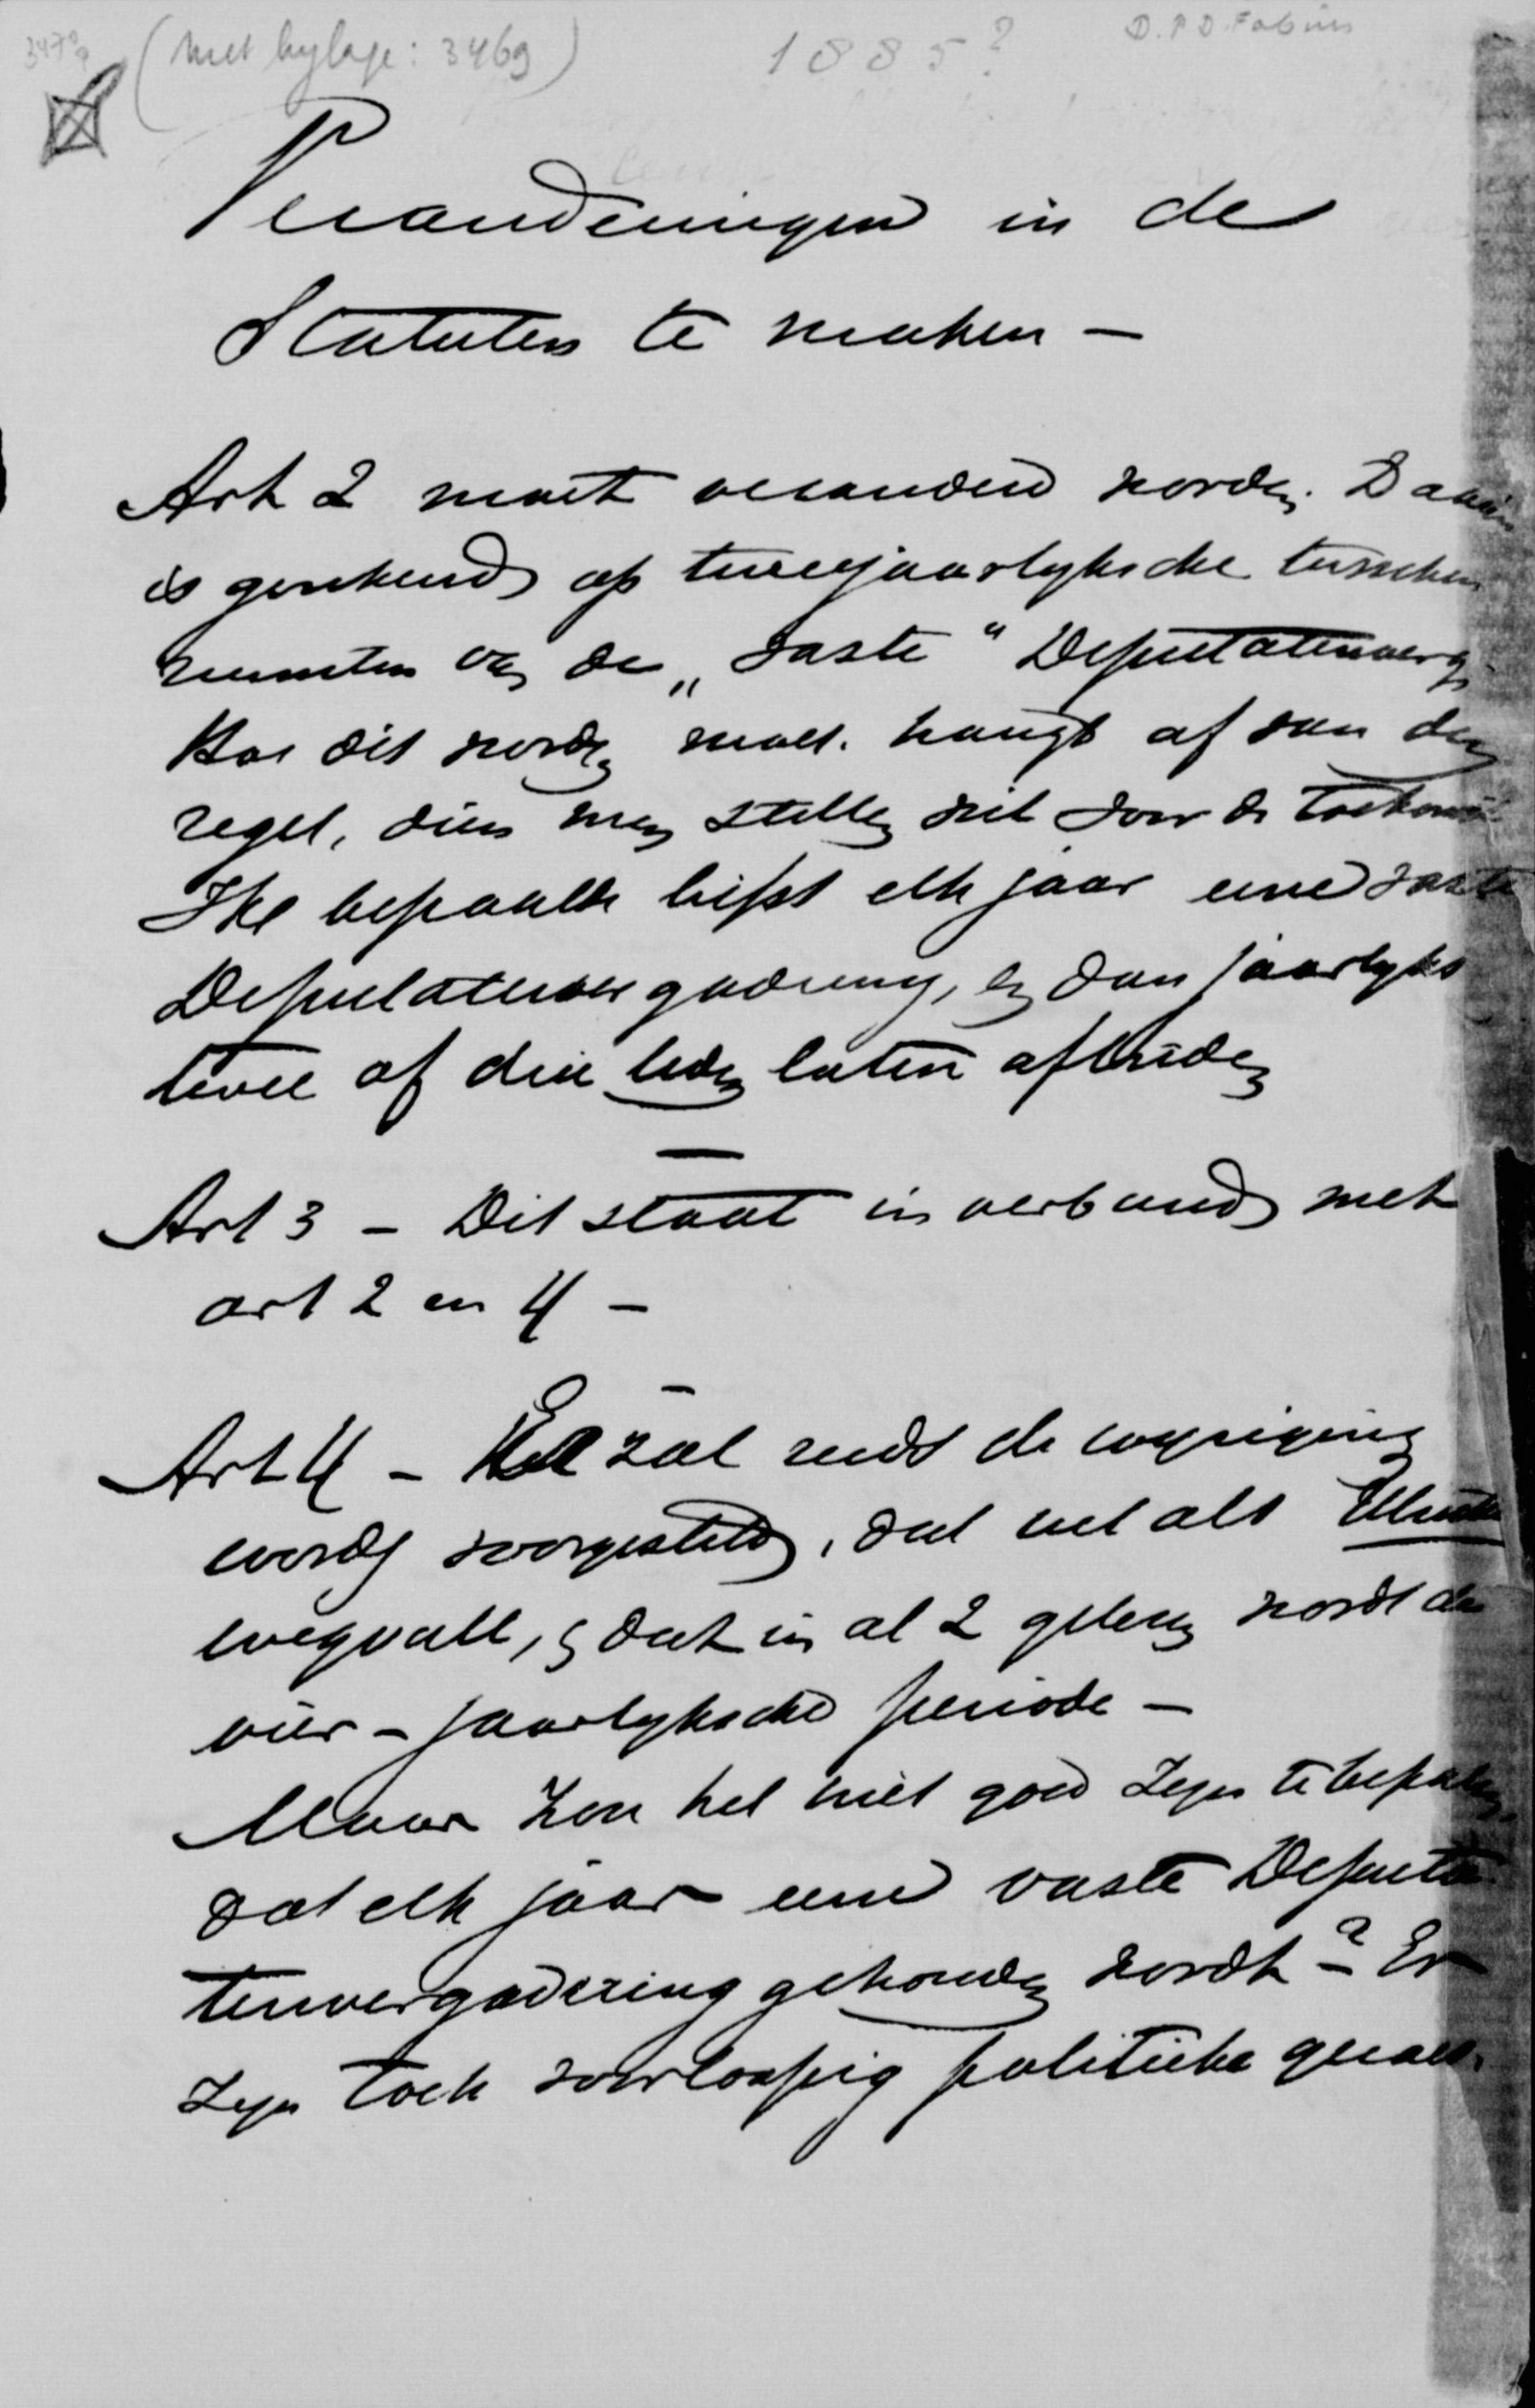 3470a (met bylage: 3469) 1885? D.P.D. Fabius
Veranderingen in de
Statuten te maken –
Art 2 moet veranderd worden. Daarin
is gerekend op tweejaarlyksche tusschen
ruimten van de „vaste" Deputatenverg.
Hoe dit worden moet, hangt af van den
regel, dien men stellen wil voor de toekomst.
Ik bepaalde liefst elk jaar eene vaste
Deputatenvergadering, en dan jaarlyks
twee of drie leden laten aftreden
Art 3 – Dit staat in verband met
art 2 en 4 –
Art 4 – Er zal wel de wyziging
worden voorgesteld, dat het alt
wegvalt, en dat in al 2 gelezen wordt de
vier-jaarlyksche periode –
Maar zou het niet goed zyn te bepalen,
dat elk jaar eene vaste Deputa
tenvergadering gehouden wordt? – Er
zyn toch voorloopig politieke